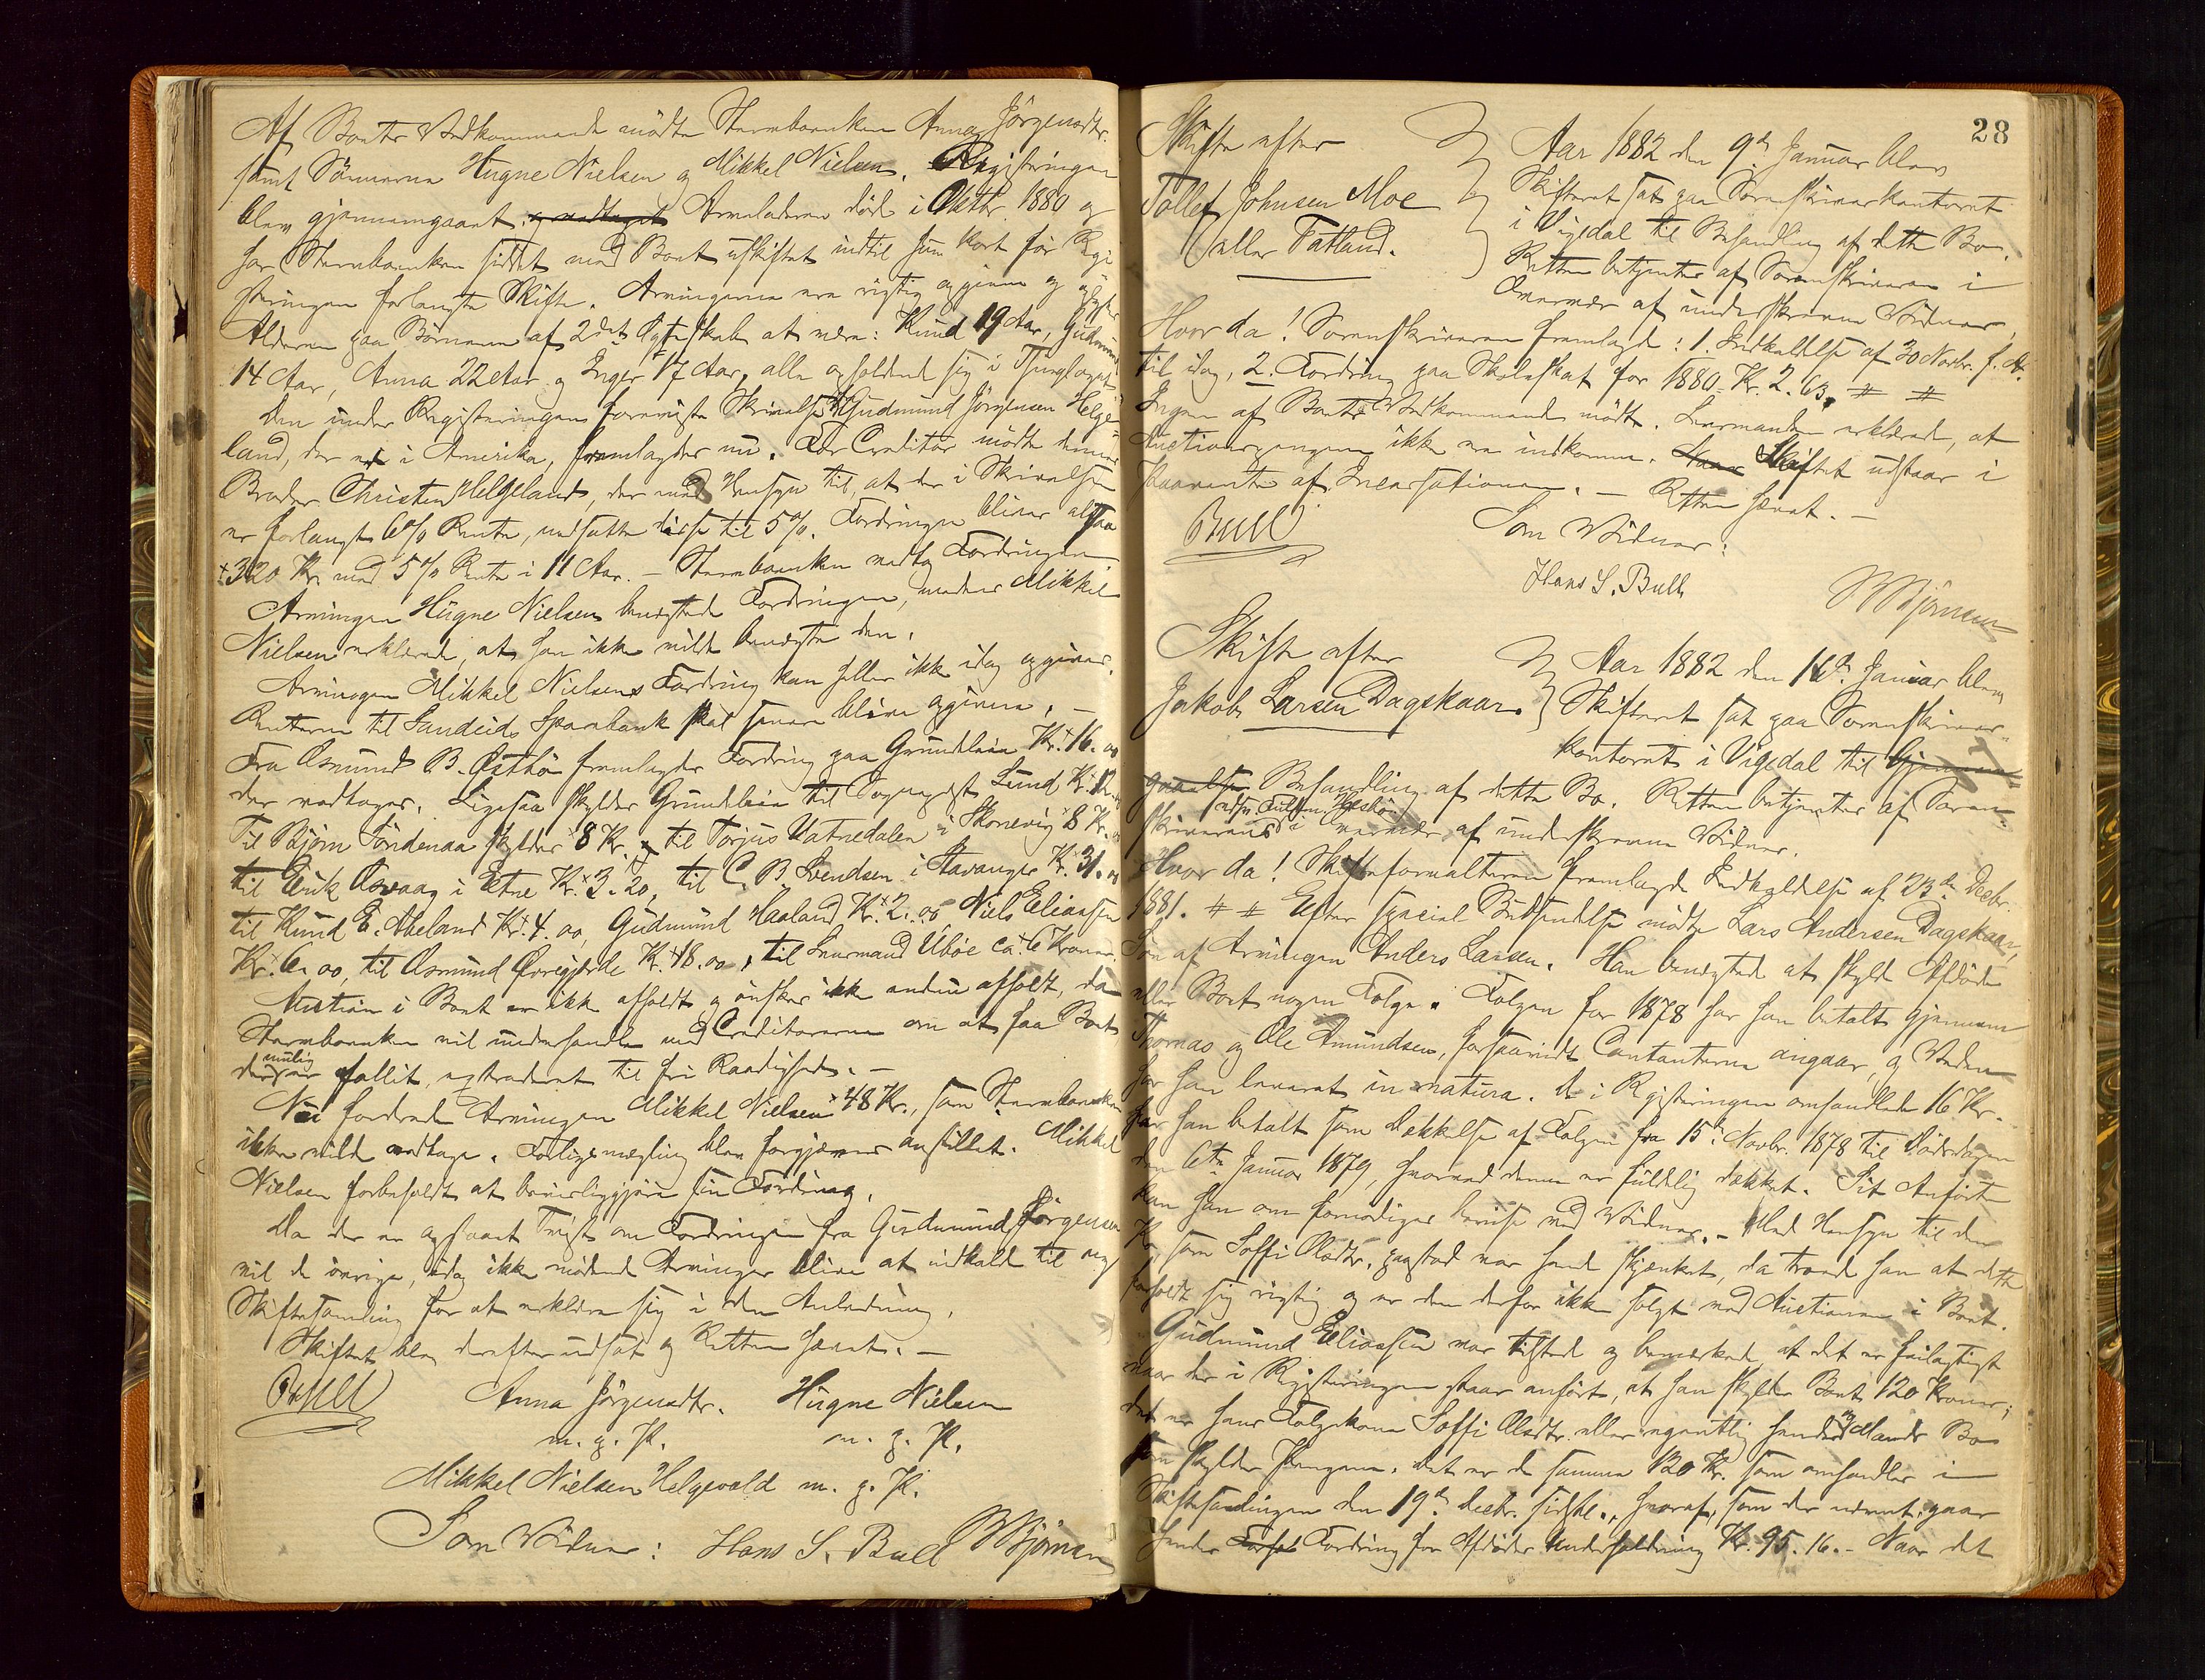 Af Boets Vedkommende mødte Stervboenken Anna Jörgensdtr.
samt Sønnerne Hugne Nielsen og Mikkel Nielsen. Registreringen
blev gjennemgaaet. og vedtaget Arveladeren døde i Oktbr. 1880 og
har Stervboenken siddet med Boet uskiftet indtil hun kort før Regi-
streringen forlangte Skifte. Arvingerne ere rigtig opgivne og oplyses
Alderen paa Børnene af 2det Ægteskab at være: Knud 19 Aar, Gudmund
14 Aar, Anna 22 Aar og Inger 17 Aar, alle opholdende sig i Thinglaget.
Den under Registreringen foreviste Skrivelse fra Gudmund Jörgensen Helge-
land, der er i Amerika, fremlagdes nu. For Creditor mødte dennes
Broder Christen Helgeland, der med Hensyn til, at der i Skrivelsen
er forlangt 6% Rente, nedsatte disse til 5%. Fordringen bliver altsaa
320 Kr. med 5% Rente i 11 Aar. – Stervboenken vedtog Fordringen
Arvingen Hugne Nielsen benegtede Fordringen, medens Mikkel
Nielsen erklærede, at han ikke vilde benegte den.
Arvingen Mikkel Nielsens Fordring kan heller ikke idag opgives.
Renterne til Sandeids Sparebank skal senere blive opgivne. –
Fra Asmund B. Østbö fremlagdes Fordring paa Grundleie Kr. 16.00
der vedtoges. Ligesaa skyldes Grundleie til Sogneprest Lund Kr. 12.00
Til Bjørn Töndenaa skyldes 8 Kr. og til Torjus Vatnedalen i Skonevig 8 Kr. 00
til Erik Osvaag i Etne Kr. 3.20, til C. B. Svendsen i Stavanger Kr. 31.00
til Knud E. Abeland Kr. 4.00, Gudmund Haaland Kr. 2.00 Niels Eliassen
Kr. 6.00, til Asmund Øvregjerde Kr. 18.00, til Lensmand Ubøe ca 6 Kroner.
Auktion i Boet er ikke afholdt og ønskes ikke endnu afholdt, da
Stervboenken vil underhandle med Creditorerne om at faa Boet,
der mulig er fallit, extraderet til fri Raadighed. –
Nu fordrede Arvingen Mikkel Nielsen 48 Kr., som Stervboenken
ikke vilde vedtage. Forligsmægling blev forgjæves anstillet. Mikkel
Nielsen forbeholdt at bevisliggjøre sin Fordring.
Da der er opstaaet Tvist om Fordringen fra Gudmund Jörgensen
vil de øvrige, idag ikke mødende Arvinger blive at indkalde til ny
Skiftesamling for at erklære sig i den Anledning.
Skiftet blev derefter udsat og Retten hævet. –
Bull Anna Jörgensdtr. Hugne Nielsen
m. p. P. m. p. P.
Mikkel Nielsen Helgevold m. p. P.
Som Vidner: Hans S. Bull Bjørnsen
28
Skifte efter
Tollef Johnsen Moe
eller Tatland.
Aar 1882 den 9de Januar blev
Skifteret sat paa Sorenskriverkontoret
i Vigedal til Behandling af dette Bo.
Retten betjentes af Sorenskriveren i
Overvær af underskrevne Vidner.
Hvor da! Sorenskriveren fremlagde: 1. Indkaldelse af 30 Novbr. f. A.
til idag, 2. Fordring paa Skoleskat for 1880 Kr. 2.63. # #
Ingen af Boets Vedkommende mødte. Lensmanden erklærede, at
Auctionspengene ikke ere indkomne. Naar Skiftet udstaar i
Paavente af Incassationen. – Retten hævet. –
Bull Som Vidner:
Hans S. Bull
Bjørnsen
Skifte efter
Jakob Larsen Dagskaar.
Aar 1882 den 14de Januar blev
Skifteret sat paa Sorenskriver-
kontoret i Vigedal til Gjennem-
gaaelse Behandling af dette Bo. Retten betjentes af Soren-
skriverens i Overvær af underskrevne Vidner.
Hvor da! Skifteforvalteren fremlagde Indkaldelse af 23de Decbr.
1881. # # Efter speciel Budsendelse mødte Lars Andersen Dagskaar,
Søn af Arvingen Anders Larsen. Han benegtede at skylde Afdøde
eller Boet nogen Folge. Folgen for 1878 har han betalt gjennem
Thomas og Ole Amundsen, forsaavidt Contanterne angaar, og Veden
har han leveret in natura. De i Registreringen omhandlede 16 Kr.
har han betalt som Dækkelse af Folgen fra 15de Novbr. 1878 til Dødsdagen
den 6te Januar 1879, hvorved denne er fuldelig dækket. Sit Anførte
kan han om fornødiges bevise med Vidner. – Med Hensyn til den
Ko, som Soffi Olsdtr. paastod var hende skjænket, da troede han at dette
forholdt sig rigtig og er den derfor ikke solgt ved Auctionen i Boet.
Gudmund Eliassen var tilstede og bemærkede, at det er feilagtigt
naar der i Registreringen staar anført, at han skylder Boet 120 Kroner;
det er hans Folgekone Soffi Olsdtr. eller egentlig hendes Mands Bo
som skylder Pengene. Det er de samme 120 Kr. som omhandles i
Skiftesamlingen den 19de Decbr. sidstl., hvoraf, som der nævnt, gaar
hendes Forhol Fordring for Afdødes Underholdning Kr. 95.16. – Naar det